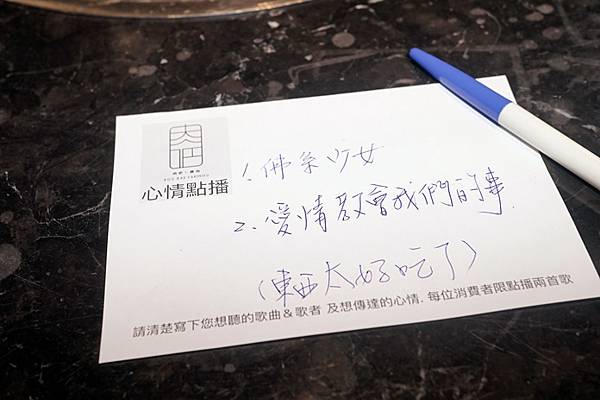 心情點播
1. 佛系少女
2. 愛情教會我們的事.
(東西太好吃了)
請清楚寫下您想聽的歌曲&歌者 及想傳達的心情. 每位消費者限點播兩首歌